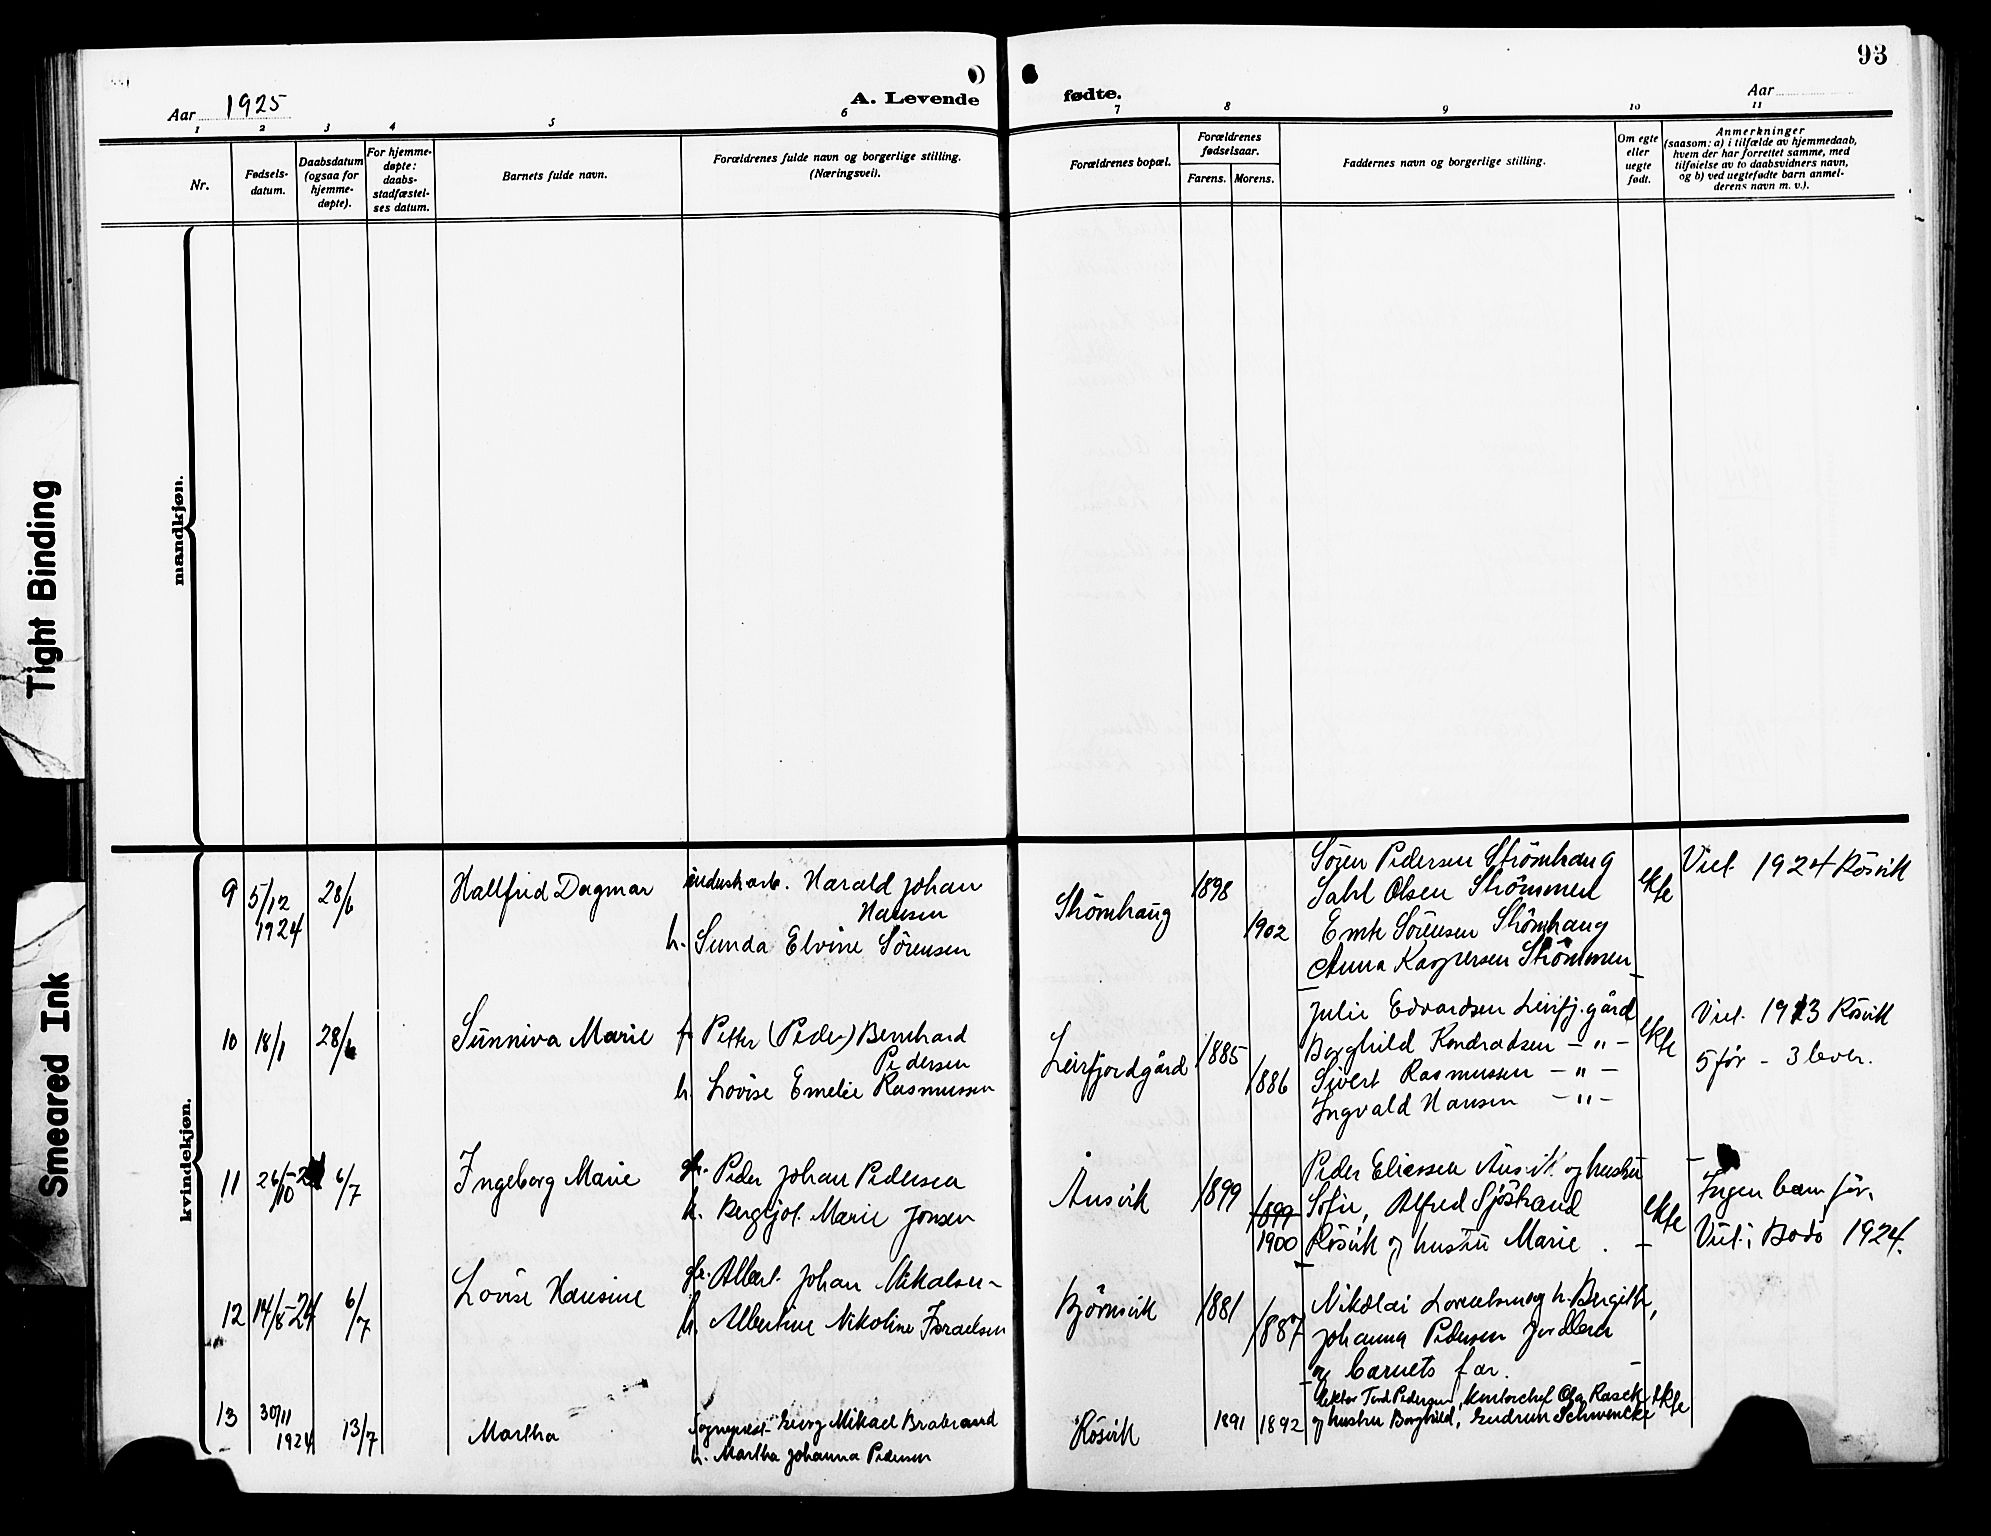 93
Aar 1925
A. Levende
fødte.
Aar
1 2 3 4 5 6 7 8 9 10 11
Nr.
Fødsels-
datum.
Daabsdatum
(ogsaa for
hjemme-
døpte).
For hjemme-
døpte:
daabs-
stadfæstel-
ses datum.
Barnets fulde navn.
Forældrenes fulde navn og borgerlige stilling.
(Næringsvei).
Forældrenes bopæl.
Forældrenes
fødselsaar.
Farens. Morens.
Faddernes navn og borgerlige stilling.
Om egte
eller
uegte
født.
Anmerkninger
(saasom: a) i tilfælde av hjemmedaab,
hvem der har forrettet samme, med
tilføielse av to daabsvidners navn,
og b) ved uegtefødte barn anmel-
derens navn m. v.).
mandkjøn.
kvindekjøn.
Tight Binding
Smeared Ink
9 5/12 1924 28/6 Hallfrid Dagmar
industriarb. Harald Johan
Hansen
h. Sunda Elvine Sørensen
Strömhaug 1898 1902
Sören Pedersen Strömhaug
Olsen Strömmen
Sörensen Strömhaug
Anna Kaspersen Strömmen
ekte
Viet 1924 Rösvik
10 18/1 28/6 Sunniva Marie
f. Petter (Peder) Bernhard
Pedersen
h. Lovise Emelie Rasmussen
Leirfjordgård 1885 1886
Julie Edvardsen Leirfj.gård
Borghild Kondradsen – " –
Sivert Rasmussen – " –
Ingvald Hansen – " –
ekte
Viet 1913 Rösvik
5 før – 3 lever.
11 26/10-24 6/7 Ingeborg Marie
Peder Johan Pedersen
h. Bergljot Marie Jonsen
Ansvik 1899 1899
1900
Peder Eliassen Ansvik og hustru
Sofie, Alfred Sjöstrand
Rösvik og hustru Marie.
ekte
Ingen barn før.
Viet i Bodö 1924.
12 14/8-24 6/7 Lovise Hansine
Albert Johan Mikalsen
h. Albertine Nikoline Israelsen
Björnsvik 1881 1887
Nikolai Lorentsen og h. Bergithe,
Johanna Pedersen
og barnets far.
13 30/11 1924 13/7 Martha
Sogneprest Georg Mikael Brabrand
h. Martha Johanna Pedersen
Rösvik 1891 1892
Lektor Pedersen, kontorchef Olaf Rasch
og hustru Borghild, Gudrun Schwencke
ekte